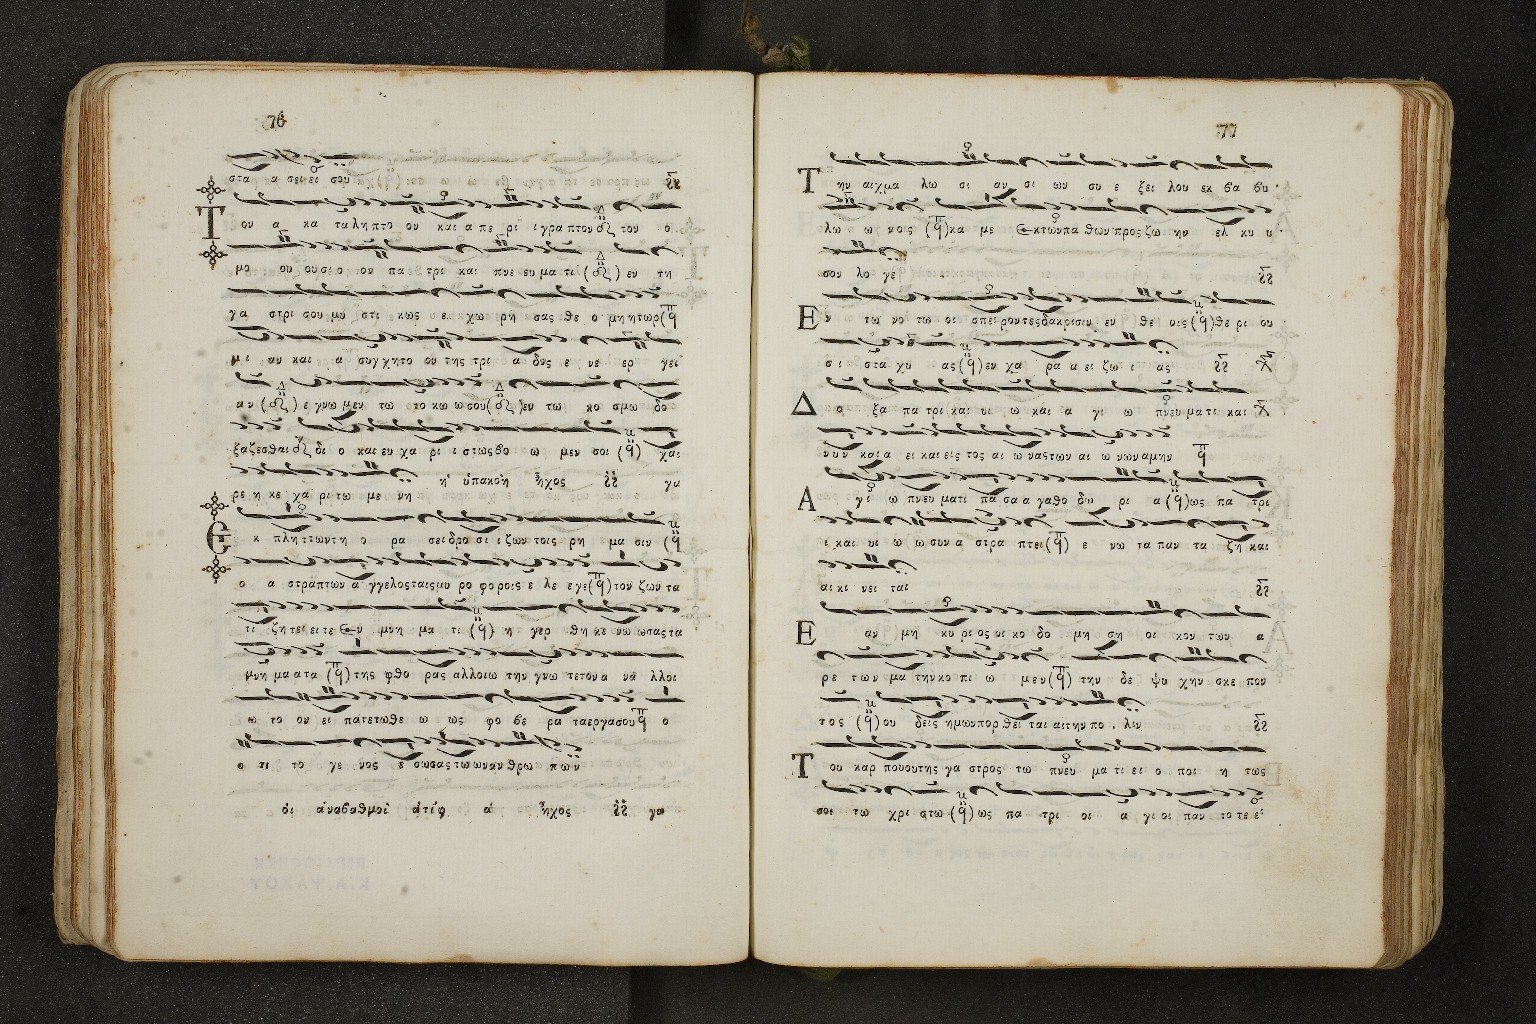 76
στα α σει ει σου
Τ ον α κα τα λη πτο ον και α πε ρι ι γρα πτον τον ο
μο ου ου σι ο ον πα τρι και πνε ευ μα τι ( ) εν τη
γα στρι σου μυ στι κως ε χω ρη σας θε ο μη η τωρ (
μι αν και α συγ χη το ου της τρι α δος ε νε ερ γει
αν ( ) ε γνω μεν τω το κω ω σου ( ) εν τω κο σμω δο
ξα ζε σθαι δι ο και ευ χα ρι ι στως βο ω μεν σοι ( ) χαι
ρε η κε χα ρι τω με νη
ἡ ὑπακοὴ ἦχος γα
Ε κ πλητ των τη ο ρα σει δρο σι ι ζων τοις ρη μα σιν (
ο α στρα πτων α γγε λος ταις μυ ρο φο ροις ε λε ε γε ( ) τον ζων τα
τι ζη τει ει τε εν μνη μα τι ( ) η γερ θη κε νω ω σας τα
μνη μα α τα ( ) της φθο ρας αλ λοι ω την γνω τε τον α να λλοι
ω το ον ει πα τε τω θε ω ως φο βε ρα τα ερ γα σου ο
ο τι το γε νος ε σω σας τω ων αν θρω πων
οἱ ἀναβαθμοὶ ἀντίφ α ἦχος γα
77
Τ ην αιχμα λω σι αν σι ων συ ε ξει λου εκ βα βυ
λω ω νος ( ) κα με εκ των πα θων προς ζω ην ελ κυ υ
σον λο γε
Ε ν τω νο τω οι σπει ρον τες δα κρι σιν εν θε οις ( ) θε ρι ου
σι στα χυ ας ( ) εν χα ρα α ει ζω ι ας
Δ ο ξα πα τρι και υι ω και α γι ω πνευ μα τι και
νυν και α ει και εις τος αι ω νας των αι ω νων α μην
Α γι ω πνευ μα τι πα σα α γα θο δω ρι α ( ) ως πα τρι
ι και υι ω ω συν α στρα πτει ( ) ε νω τα παν τα ζη και
αι κι νει ται
Ε αν μη κυ ρι ος οι κο δο μη ση οι κον των α
ρε των μα την κο πι ω μεν ( ) την δε ψυ χην σκε πον
τος ( ) ου δεις η μων πορ θει ται αι την πο λιν
Τ ου καρ που ου της γα στρος τω πνευ μα τι ει ο ποι η τως
σοι τω χρι στω ( ) ως πα τρι οι α γι οι παν το τε ει